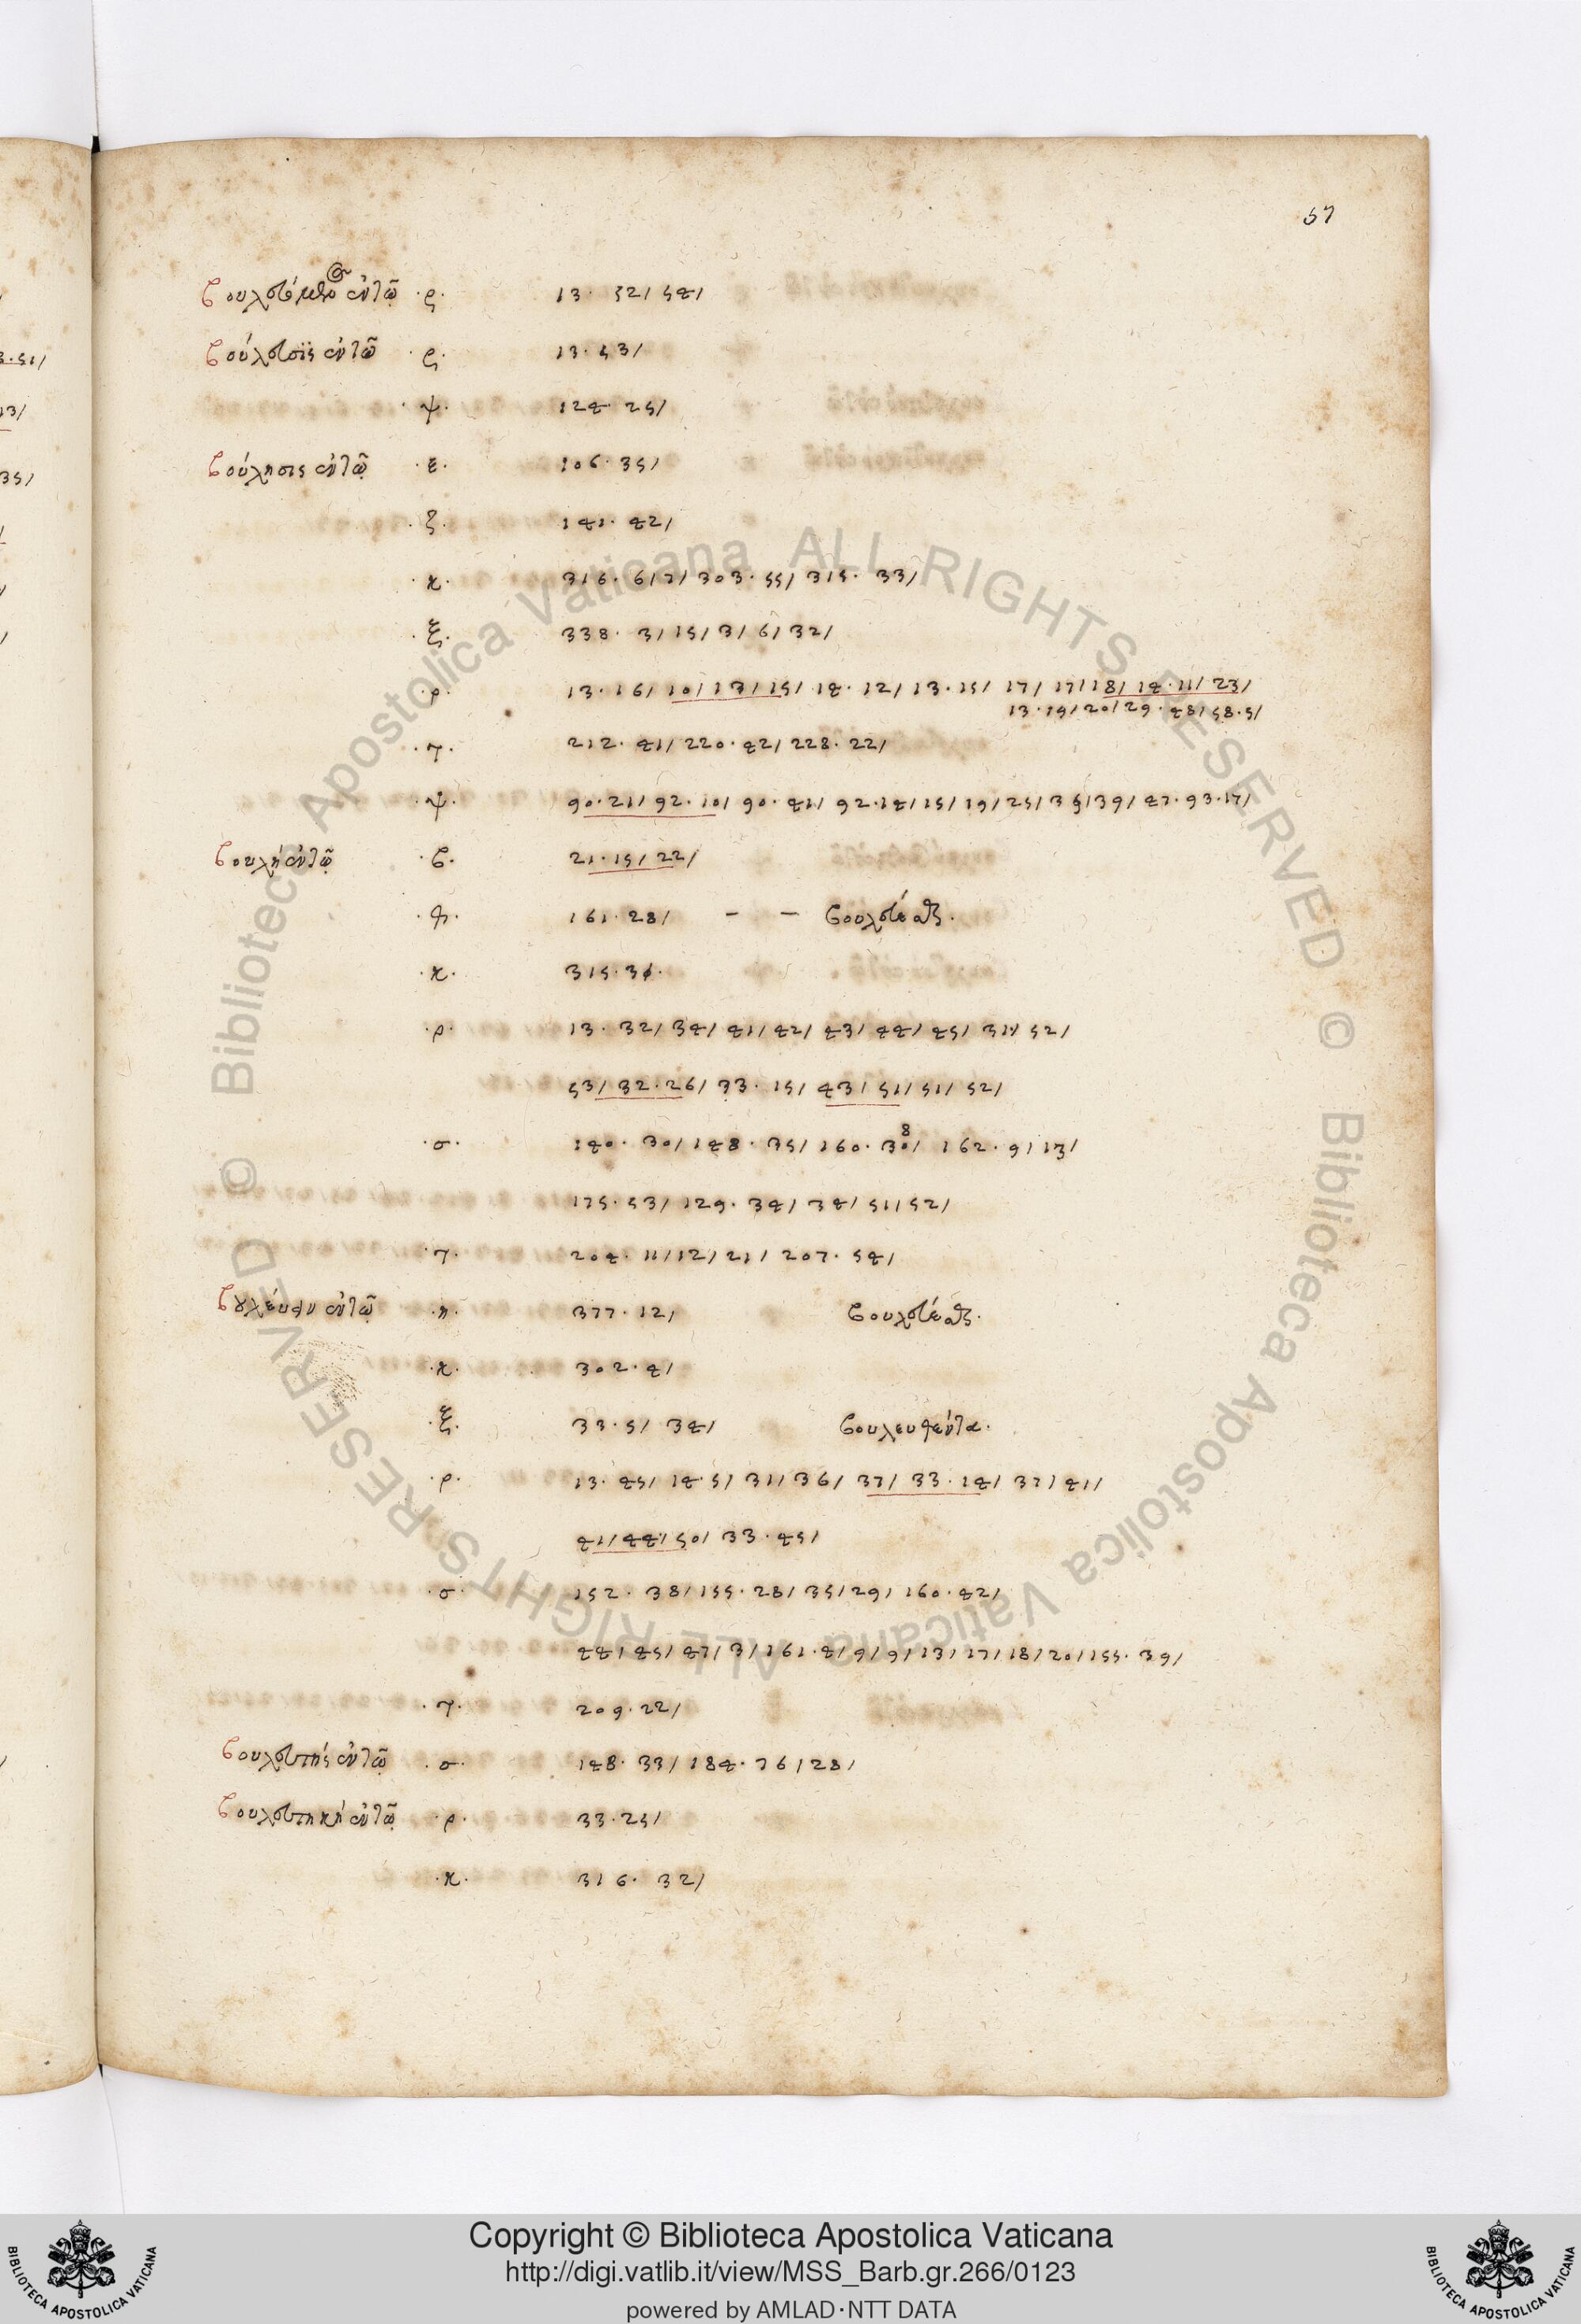 57
βουλευόμενο ἐν τῷ ·ρ· 13 · 52 / 54 /
βούλευσις ἐν τῷ ·ρ· 13 · 53 /
·ψ· 124 · 25 /
βούλησις ἐν τῷ ·ε· 106 · 35 /
·ζ· 141 · 42 /
·κ· 316 · 6 / 7 / 303 · 55 / 315 · 33 /
·ξ· 338 · 3 / 15 / 3 / 6 / 32 /
·ρ· 13 · 16 / 10 / 13 / 15 / 14 · 12 / 13 · 15 / 17 / 17 / 18 / 14 · 11 / 23 /
13 · 19 / 20 / 29 · 48 / 58 · 5 /
·τ· 212 · 41 / 220 · 42 / 228 · 22 /
·ψ· 90 · 21 / 92 · 10 / 90 · 41 / 92 · 14 / 15 / 19 / 25 / 35 / 39 / 47 · 93 · 17 /
βουλή ἐν τῷ ·β· 21 · 15 / 22 /
·φ· 161 · 28 / – – βουλεύεσθαι·
·κ· 315 · 36 ·
·ρ· 13 · 32 / 34 / 41 / 42 / 43 / 44 / 45 / 31 / 52 /
53 / 32 · 26 / 33 · 15 / 43 / 51 / 51 / 52 /
·σ· 140 · 30 / 148 · 35 / 160 · 30 8 / 162 · 9 / 13 /
175 · 53 / 129 · 34 / 34 / 51 / 52 /
·τ· 204 · 11 / 12 / 21 / 207 · 54 /
βουλεύειν ἐν τῷ ·η· 377 · 12 / βουλεύεσθαι·
·κ· 302 · 4 /
·ξ· 33 · 5 / 34 / βουλευθέντα·
·ρ· 13 · 45 / 14 · 5 / 31 / 36 / 37 / 33 · 14 / 37 / 41 /
41 / 44 / 50 / 33 · 45 /
·σ· 152 · 38 / 155 · 28 / 35 / 29 / 160 · 42 /
44 / 45 / 47 / 3 / 161 · 4 / 9 / 9 / 13 / 17 / 18 / 20 / 155 · 39 /
·τ· 209 · 22 /
βουλευτής ἐν τῷ ·σ· 148 · 33 / 184 · 76 / 28 /
βουλευτική ἐν τῷ ·ρ· 33 · 25 /
·κ· 316 · 32 /
Copyright © Biblioteca Apostolica Vaticana
http://digi.vatlib.it/view/MSS_Barb.gr.266/0123
powered by AMLAD·NTT DATA